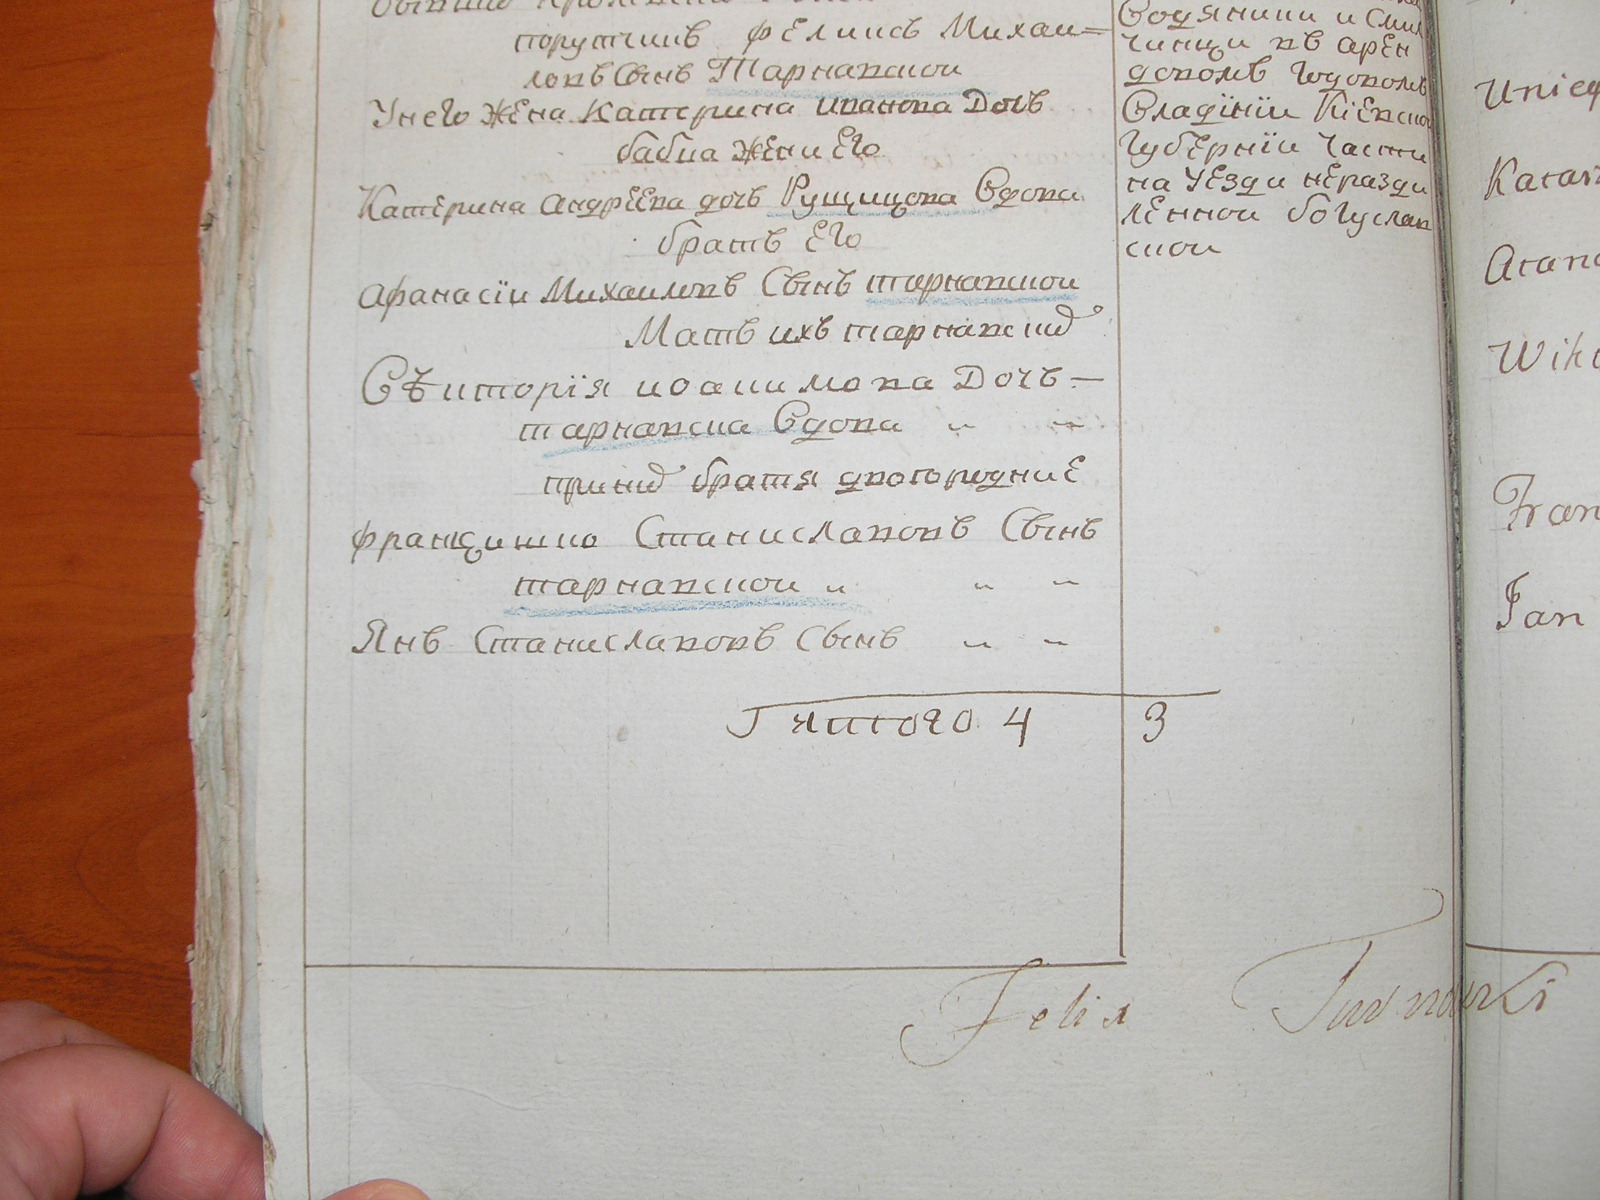 порутчикъ Феликсъ Михаи=
ловъ Сынъ Тарнавской
У него Жена Катерина иванова Дочь
бабка Жени Его
Катерина Андреева дочь Рущицова Вдова
братъ Его
Афанасіи Михаиловъ Сынъ тарнавской
Мать ихъ тарнавскихъ
Вѣкторія иоакимова Дочь —
тарнавска Вдова " "
при нихъ братя двоюродние
Францишко Станиславовъ Сынъ
тарнавскои " " "
Янъ Станиславовъ Сынъ " "
итого 4 3
Водяники и
чинци въ арен
довомъ годовомъ
Владініи Кіевской
Губерніи части
на уезди неразди
ленной богуслав
ской
Felix Tarnawski
Wikt
Fran
Jan